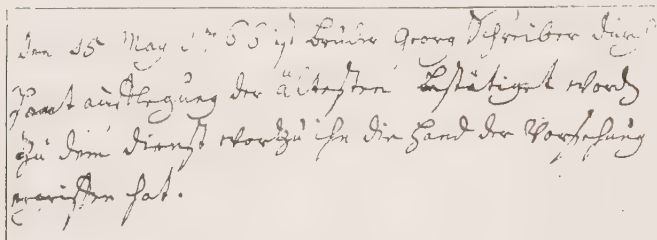 den 15 May 1766 ist bruder Georg Schreiber durch
Handt auflegung der ältesten bestätiget word
zu dem dienst wordzu ihn die Hand der Vorsehung
ergriffen hat.